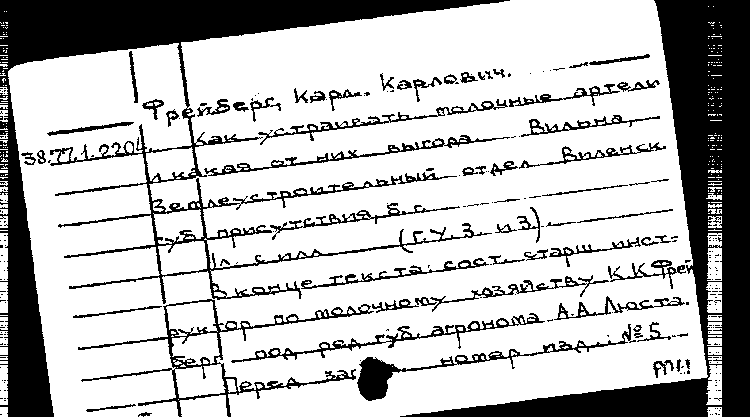 Фрейберг, Карл Карлович.
38.77.1.2204. Как устраивать молочные артели
и какая от них выгода. Вильна,
Землеустроительный отдел Виленск.
губ. присутствия, б. г.
1 л. с илл. (Г. У. З. и З).
В конце текста: сост. старш. инст-
руктор по молочному хозяйству К. К. Фрей
берг под ред. губ. агронома А. А. Люста.
Перед номер изд.: № 5.